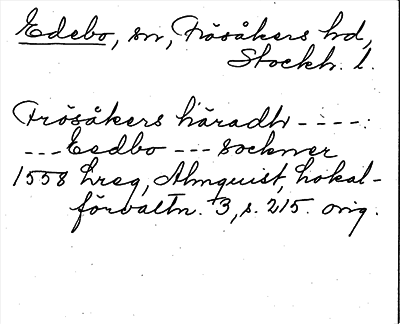 Edebo, sn, Frösåkers hd,
Stockh. l.
Frösåkers häradh ----:
--- Eedbo --- sockner
1558 hreg, Almquist, Lokal-
förvaltn. 3, s. 215. orig.